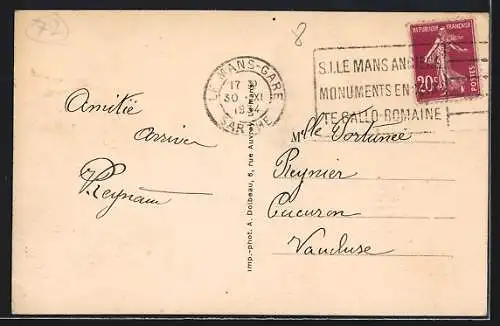 72
8
LE MANS-GARE
17 30
30 XI
1934
SARTHE
S.I. LE MANS ANC
MONUMENTS EN
TE GALLO-ROMAINE
REPUBLIQUE FRANÇAISE
20c
POSTES
Amitié
Arrive
Reynaud
Mlle Fortunée
Peynier
Cucuron
Vaucluse
Imp.-phot. A. Dolbeau, 6, rue Auvray, Le Mans